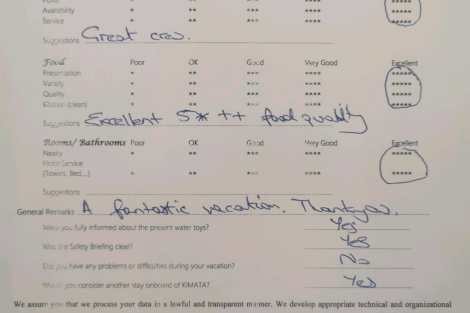 Availability * ** *** **** *****
Service * ** *** **** *****
Suggestions Great crew.
Food Poor OK Good Very Good Excellent
Presentation * ** *** **** *****
Variety * ** *** **** *****
Quality * ** *** **** *****
* ** *** **** *****
Suggestions Excellent 5* ++ food quality
Rooms/ Bathrooms Poor OK Good Very Good Excellent
Neaty * ** *** **** *****
Hotel Service
(Towels, Bed,...) * ** *** **** *****
Suggestions
General Remarks A fantastic vacation. Thankyou.
Were you fully informed about the present water toys? Yes
Was the Safety Briefing clear? Yes
Did you have any problems or difficulties during your vacation? No
Would you consider another stay onboard of KIMATA? Yes
We assure you that we process your data in a lawful and transparent manner. We develop appropriate technical and organizational